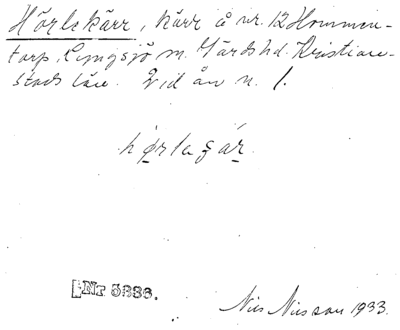 Hörlskärr, kärr å nr. 12 Hommen-
torp, Lyngsjö sn. Gärds hd. Kristian-
stads län. Vid ån n. 1.
hørlagár
Nr 5333.
Nils Nilsson 1933.